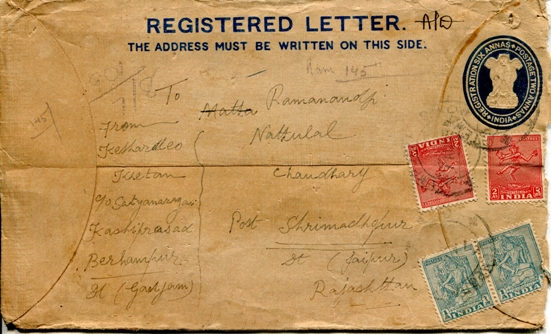 REGISTERED LETTER. A/D
THE ADDRESS MUST BE WRITTEN ON THIS SIDE.
REGISTRATION SIX ANNAS
POSTAGE TWO ANNAS
INDIA
Ram 145
145
To
Matta Ramanandji
Nathulal
Chaudhary
Post Shrimadhopur
Dt (Jaipur)
Rajasthan
From
Keshardeo
Khetan
c/o Satyanarayan
Kashiprasad
Berhampur
Dt (Ganjam)
INDIA
INDIA
INDIA
INDIA